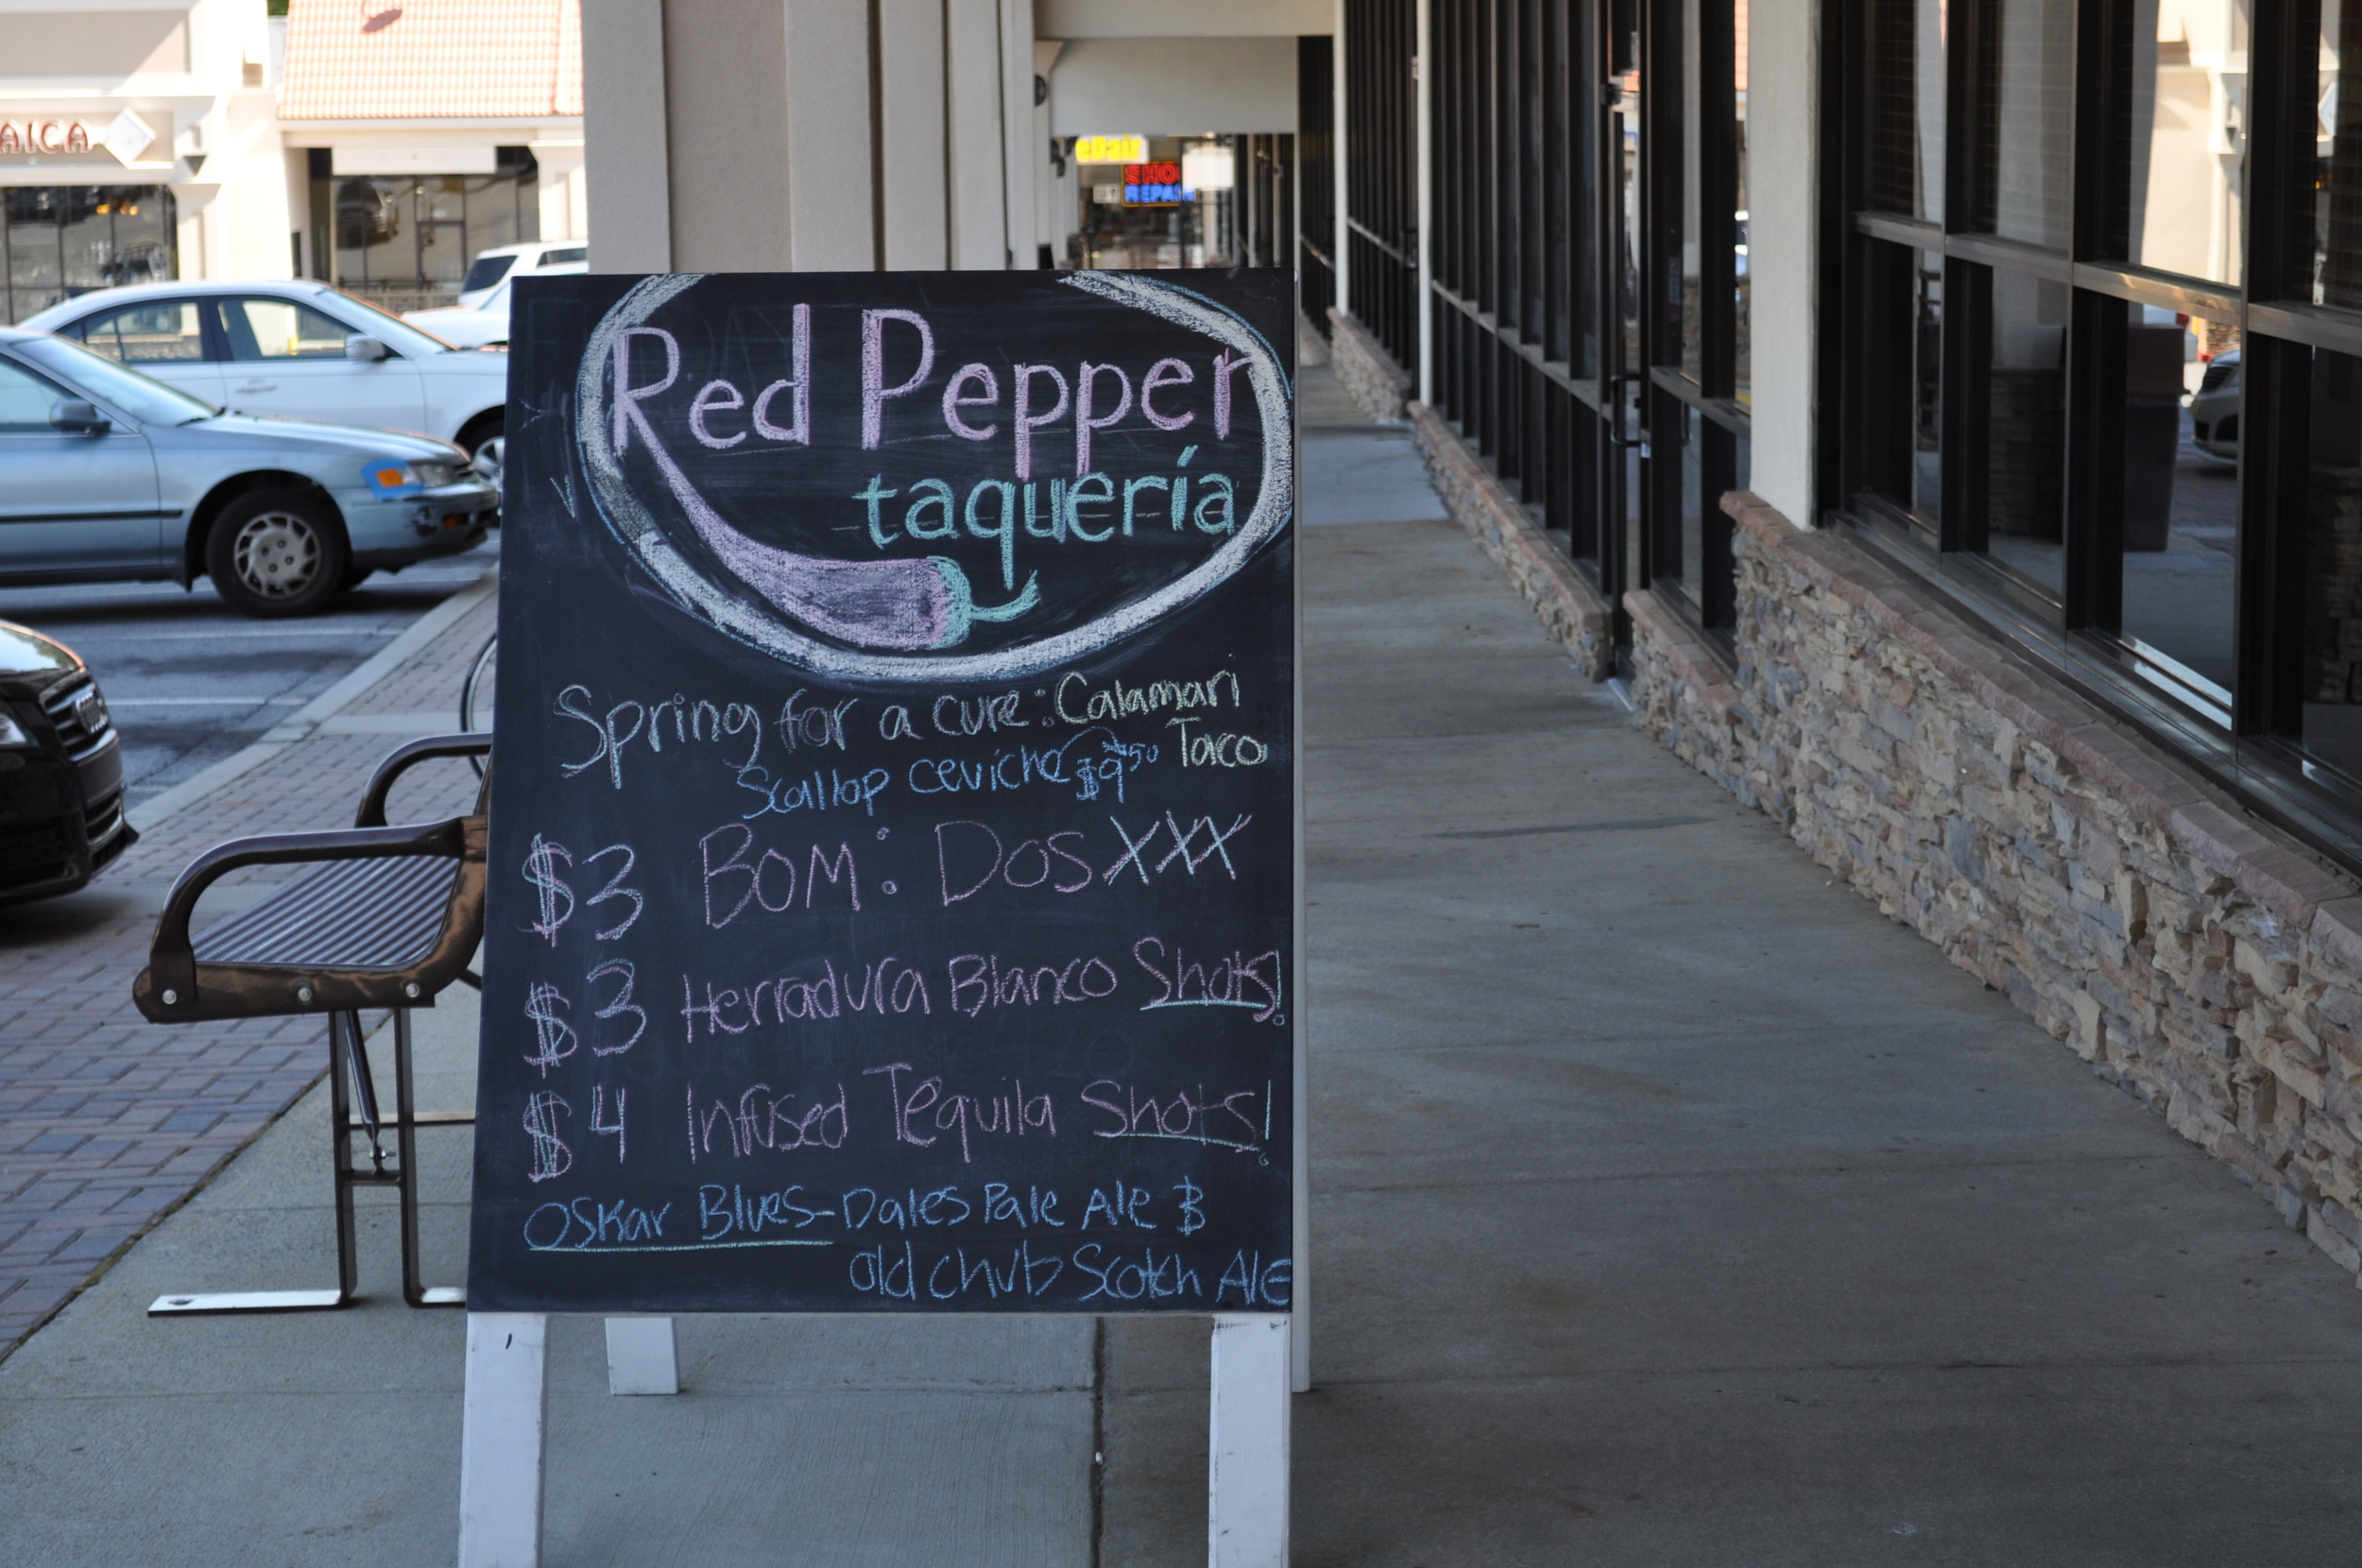 AICA
epair
SHO
REPAI
Red Pepper
taquería
Spring for a cure: Calamari
Taco
Scallop ceviche $9.50
$3 BOM: Dos XXX
$3 Herradura Blanco Shots!
$4 Infused Tequila Shots!
Oskar Blues-Dales Pale Ale &
old chub Scotch Ale